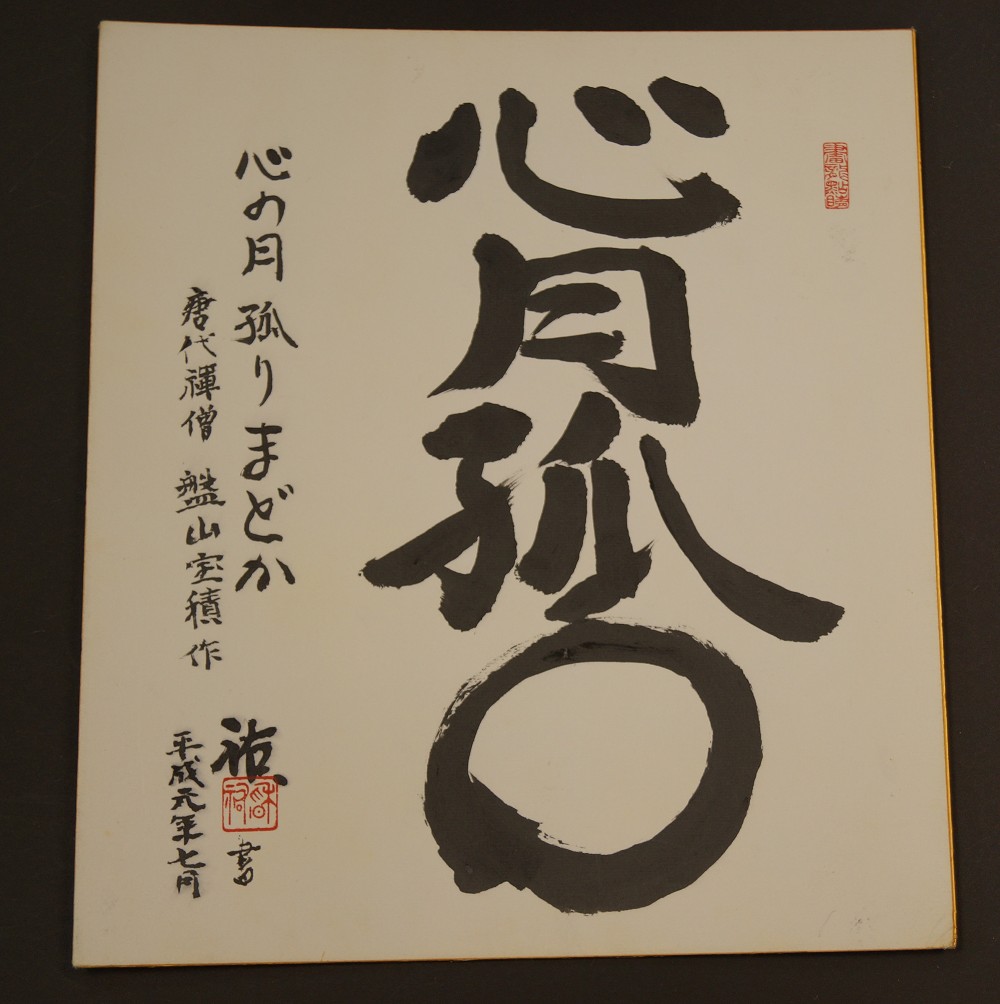 畫龍點睛
心月孤〇
心の月 孤りまどか
唐代禪僧 盤山宝積作
祐 書
平成元年七月